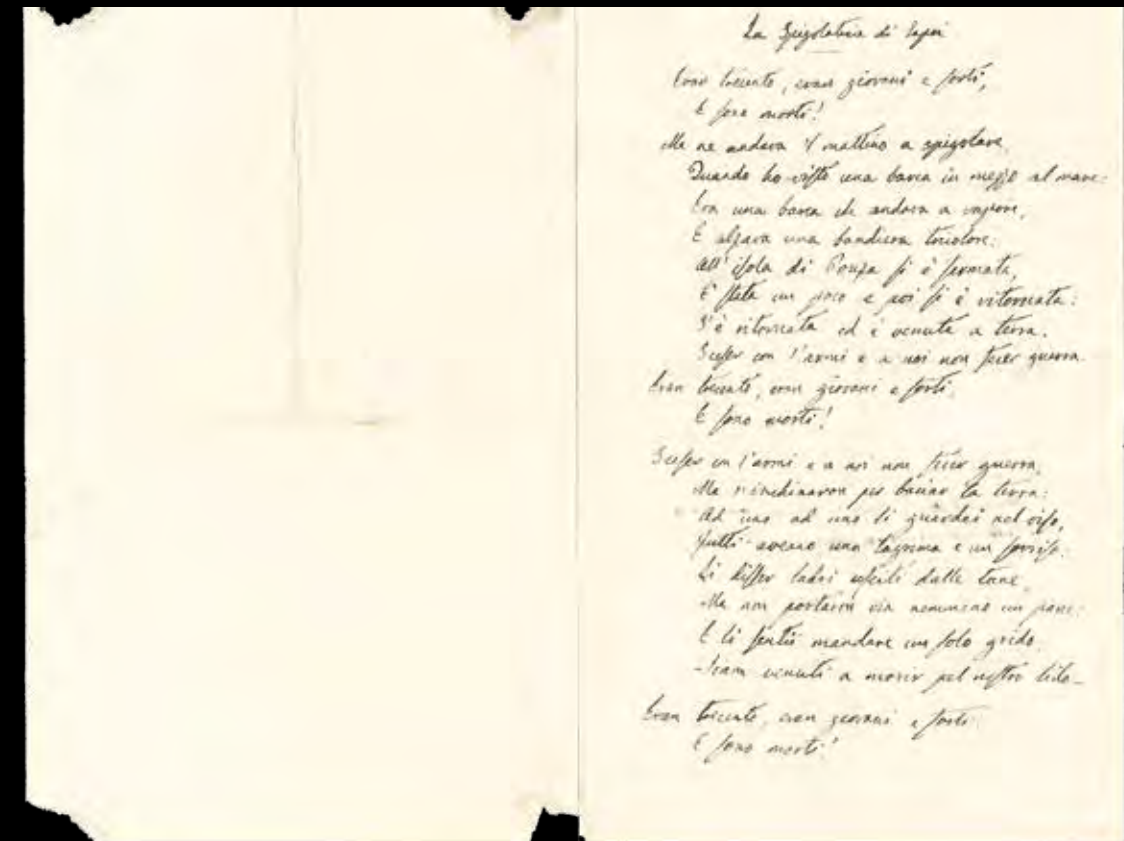 La Spigolatrice di Sapri
Eran trecento, eran giovani e forti,
E sono morti!
Me ne andava il mattino a spigolare,
Quando ho visto una barca in mezzo al mare:
Era una barca che andava a vapore,
E alzava una bandiera tricolore:
All'isola di Ponza si è fermata,
È stata un poco e poi si è ritornata:
S'è ritornata ed è venuta a terra,
Sceser con l'armi e a noi non fecer guerra.
Eran trecento, eran giovani e forti,
E sono morti!
Sceser con l'armi e a noi non fecer guerra,
Ma s'inchinaron per baciar la terra:
Ad uno ad uno li guardai nel viso,
Tutti aveano una lagrima e un sorriso.
Li disser ladri usciti dalle tane,
Ma non portaron via nemmeno un pane:
E li sentii mandare un solo grido.
-Siam venuti a morir pel nostro lido-
Eran trecento, eran giovani e forti
E sono morti!